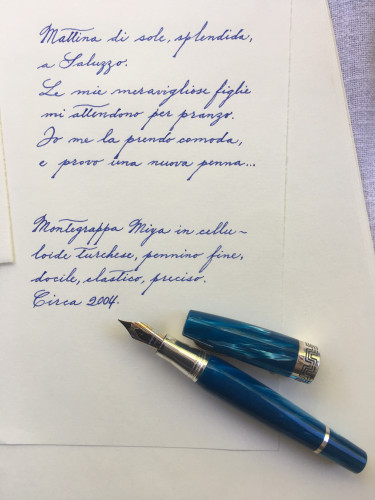 Mattina di sole, splendida,
a Saluzzo.
Le mie meravigliose figlie
mi attendono per pranzo.
Io me la prendo comoda,
e provo una nuova penna...
Montegrappa Miya in cellu-
loide turchese, pennino fine,
docile, elastico, preciso.
Circa 2004.